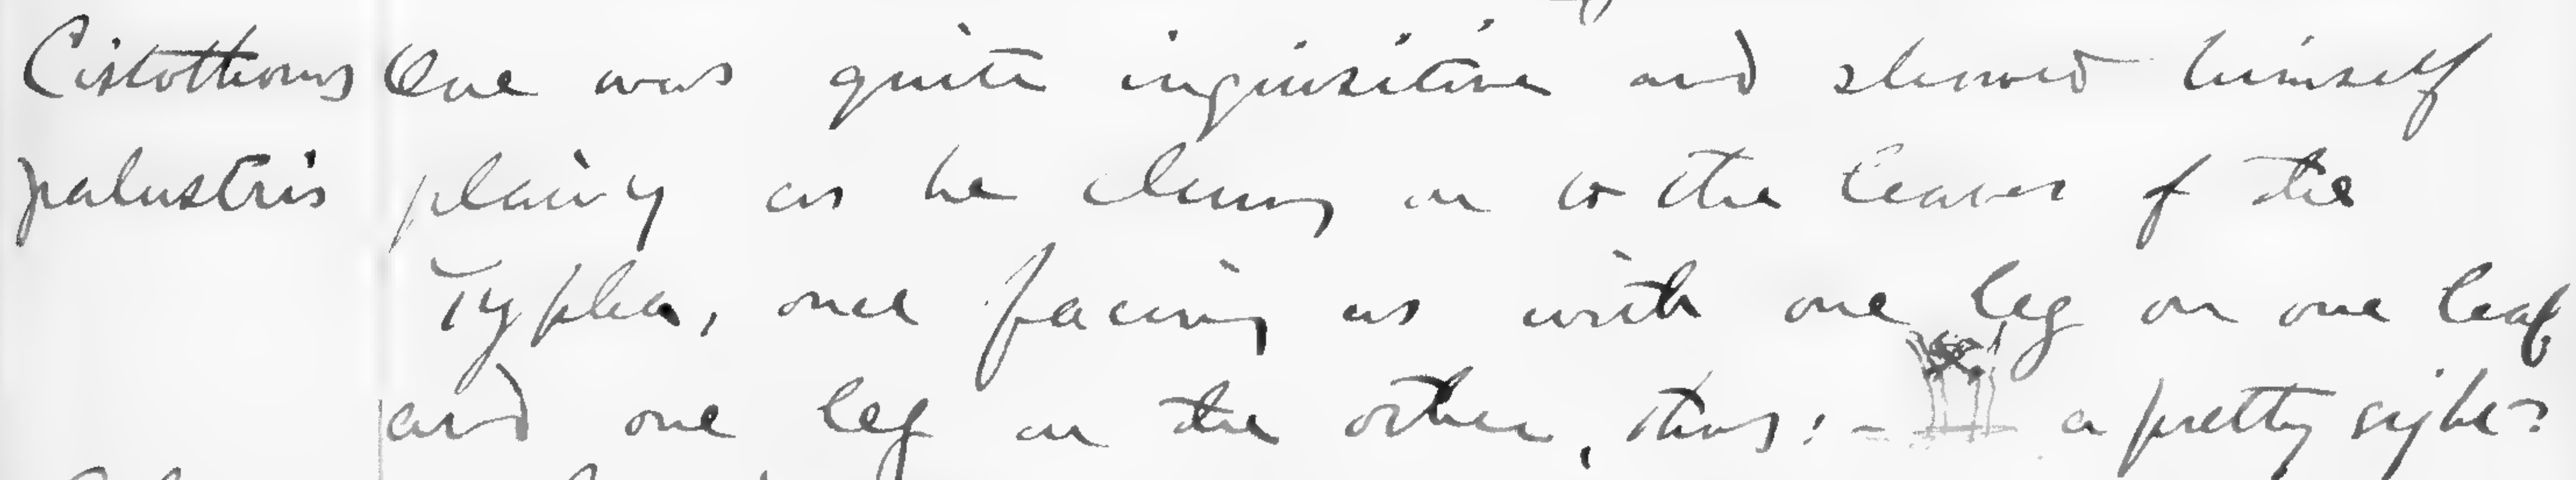 Cistothorus One was quite inquisitive and showed himself
palustris plainly as he clung on to the leaves of the
Typha, once facing us with one leg on one leaf
and one leg on the other, thus:- a pretty sight